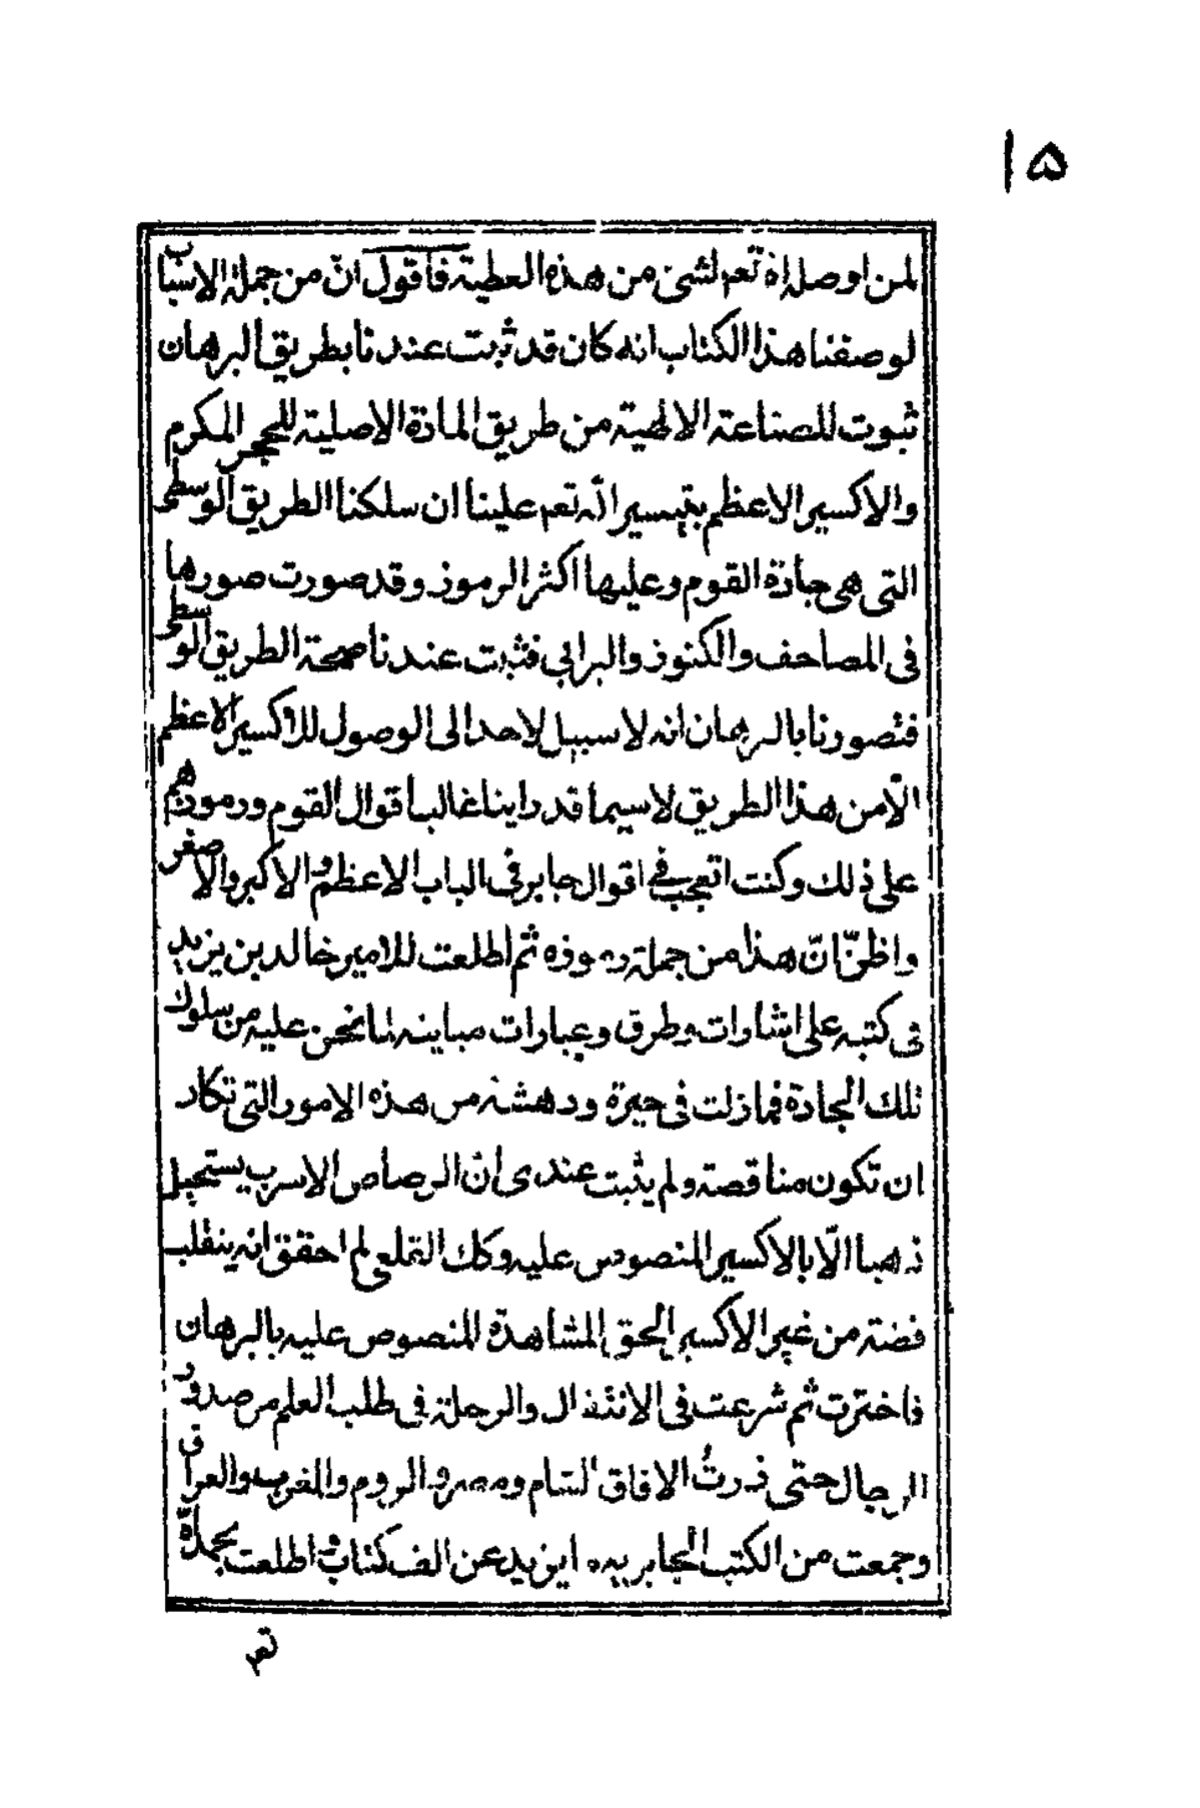 ١٥
لمن اوصله اة تعم لشئ من هذه العطية فاقول انّ من جملة الاسباب
لوصفنا هذا الكتاب انه كان قد ثبت عندنا بطريق البرهان
ثبوت للصناعة الالهية من طريق المادة الاصلية للحجر المكرم
والاكسير الاعظم بتيسير الله تعم علينا ان سلكنا الطريق الوسطى
التى هى جادة القوم وعليها اكثر الرموز وقد صورت صورها
فى المصاحف والكنوز والبرابى فثبت عندنا صحة الطريق الوسطى
فتصورنا بالبرهان انه لا سبيل لاحد الى الوصول للاكسير الاعظم
الّا من هذا الطريق لاسيما قد راينا غالب اقوال القوم ورموزهم
على ذلك وكنت اتعجب فى اقوال جابر فى الباب الاعظم و الاكبر والاصغر
واظنّ انّ هذا من جملة رموزه ثم اطلعت للامير خالد بن يزيد
فى كتبه على اشارات وطرق وعبارات مباينه لما نحن عليه من سلوك
تلك الجادة فما زلت فى حيرة ودهشة من هذه الامور التى تكاد
ان تكون مناقصة ولم يثبت عندى ان الرصاص الاسرب يستحيل
ذهبا الّا بالاكسير المنصوص عليه وكك القلعى لم احقق انه ينقلب
فضة من غير الاكسير الحق المشاهدة المنصوص عليه بالبرهان
فاخترت ثم شرعت فى الانتقال والرحلة فى طلب العلم من صدور
الرجال حتى زرتُ الافاق الشام ومصر والروم والمغرب والعراق
وجمعت من الكتب الجابريه ازيد عن الف كتاب و اطلعت بحمد الله
تعم